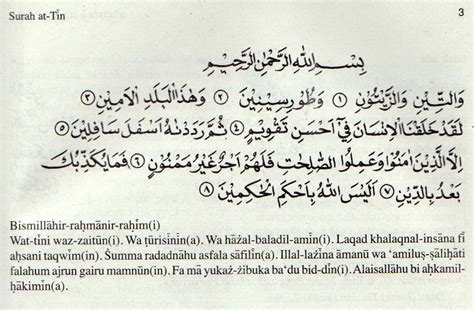 Surah at-Tīn 3
بِسْمِ اللهِ الرَّحْمٰنِ الرَّحِيْمِ
وَالتِّيْنِ وَالزَّيْتُوْنِ ۝١ وَطُوْرِ سِيْنِيْنَ ۝٢ وَهٰذَا الْبَلَدِ الْاَمِيْنِ ۝٣
لَقَدْ خَلَقْنَا الْاِنْسَانَ فِيْٓ اَحْسَنِ تَقْوِيْمٍ ۝٤ ثُمَّ رَدَدْنٰهُ اَسْفَلَ سَافِلِيْنَ ۝٥
اِلَّا الَّذِيْنَ اٰمَنُوْا وَعَمِلُوا الصّٰلِحٰتِ فَلَهُمْ اَجْرٌ غَيْرُ مَمْنُوْنٍ ۝٦ فَمَا يُكَذِّبُكَ
بَعْدُ بِالدِّيْنِ ۝٧ اَلَيْسَ اللهُ بِاَحْكَمِ الْحٰكِمِيْنَ ۝٨
Bismillāhir-raḥmānir-raḥīm(i)
Wat-tīni waz-zaitūn(i). Wa ṭūrisīnīn(a). Wa hāżal-baladil-amīn(i). Laqad khalaqnal-insāna fī
aḥsani taqwīm(in). Ṡumma radadnāhu asfala sāfilīn(a). Illal-lażīna āmanū wa ‘amiluṣ-ṣāliḥāti
falahum ajrun gairu mamnūn(in). Fa mā yukaż-żibuka ba‘du bid-dīn(i). Alaisallāhu bi aḥkamil-
ḥākimīn(a).